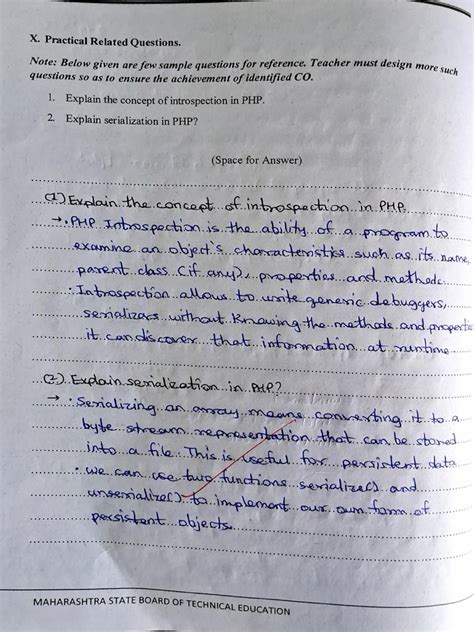 X. Practical Related Questions.
Note: Below given are few sample questions for reference. Teacher must design more such
questions so as to ensure the achievement of identified CO.
1. Explain the concept of introspection in PHP.
2. Explain serialization in PHP?
(Space for Answer)
Q1) Explain the concept of introspection in PHP.
→ • PHP Introspection is the ability of a program to
examine an object's characteristics such as its name,
parent class (if any), properties and methods.
• Introspection allows to write generic debuggers,
serializers without knowing the methods and properties
it can discover that information at runtime
(2) Explain serialization in PHP?
→ • Serializing an array means converting it to a
byte stream representation that can be stored
into a file. This is useful for persistent data
• we can use two functions serialize() and
unserialize() to implement our own form of
persistent objects.
MAHARASHTRA STATE BOARD OF TECHNICAL EDUCATION